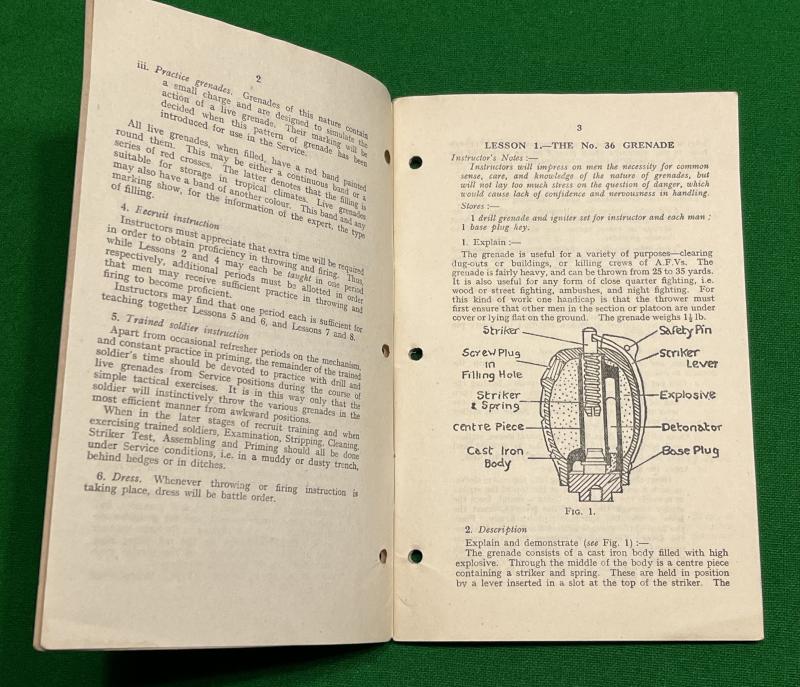 2
iii. Practice grenades. Grenades of this nature contain
a small charge and are designed to simulate the
action of a live grenade. Their marking will be
decided when this pattern of grenade has been
introduced for use in the Service.
All live grenades, when filled, have a red band painted
round them. This may be either a continuous band or a
series of red crosses. The latter denotes that the filling is
suitable for storage in tropical climates. Live grenades
may also have a band of another colour. This band and any
marking show, for the information of the expert, the type
of filling.
4. Recruit instruction
Instructors must appreciate that extra time will be required
in order to obtain proficiency in throwing and firing. Thus,
while Lessons 2 and 4 may each be taught in one period
respectively, additional periods must be allotted in order
that men may receive sufficient practice in throwing and
firing to become proficient.
Instructors may find that one period each is sufficient for
teaching together Lessons 5 and 6, and Lessons 7 and 8.
5. Trained soldier instruction
Apart from occasional refresher periods on the mechanism,
and constant practice in priming, the remainder of the trained
soldier's time should be devoted to practice with drill and
live grenades from Service positions during the course of
simple tactical exercises. It is in this way only that the
soldier will instinctively throw the various grenades in the
most efficient manner from awkward positions.
When in the later stages of recruit training and when
exercising trained soldiers, Examination, Stripping, Cleaning,
Striker Test, Assembling and Priming should all be done
under Service conditions, i.e. in a muddy or dusty trench,
behind hedges or in ditches.
6. Dress. Whenever throwing or firing instruction is
taking place, dress will be battle order.
3
LESSON 1.—THE No. 36 GRENADE
Instructor's Notes :—
Instructors will impress on men the necessity for common
sense, care, and knowledge of the nature of grenades, but
will not lay too much stress on the question of danger, which
would cause lack of confidence and nervousness in handling.
Stores :—
1 drill grenade and igniter set for instructor and each man ;
1 base plug key.
1. Explain :—
The grenade is useful for a variety of purposes—clearing
dug-outs or buildings, or killing crews of A.F.Vs. The
grenade is fairly heavy, and can be thrown from 25 to 35 yards.
It is also useful for any form of close quarter fighting, i.e.
wood or street fighting, ambushes, and night fighting. For
this kind of work one handicap is that the thrower must
first ensure that other men in the section or platoon are under
cover or lying flat on the ground. The grenade weighs 1½ lb.
Striker
Safety Pin
Screw Plug
in
Filling Hole
Striker
Lever
Striker
& Spring
Explosive
Centre Piece
Detonator
Cast Iron
Body
Base Plug
FIG. 1.
2. Description
Explain and demonstrate (see Fig. 1) :—
The grenade consists of a cast iron body filled with high
explosive. Through the middle of the body is a centre piece
containing a striker and spring. These are held in position
by a lever inserted in a slot at the top of the striker. The